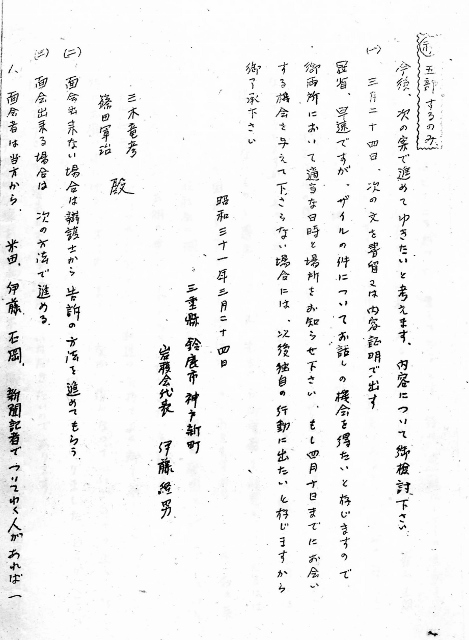 ㊞ 五部するのみ
今後、次の案で進めてゆきたいと考えます。内容について御検討下さい。
(一) 三月二十四日、次の文を書留又は内容証明で出す
冠省、早速ですが、ザイルの件についてお話しの機会を得たいと存じますので
御両所において適当な日時と場所をお知らせ下さい。もし四月十日までにお会い
する機会を与えて下さらない場合には、次後独自の行動に出たいと存じますから
御了承下さい
昭和三十一年三月二十四日
三重縣鈴鹿市神戸新町
岩稜会代表 伊藤経男
三木竜彦
篠田軍治 殿
(二) 面会出来ない場合は辯護士から告訴の方法を進めてもらう。
(三) 面会出来る場合は 次の方法で進める。
1、面会者は当方から、米田、伊藤、石岡、新聞記者でついてゆく人があれば一